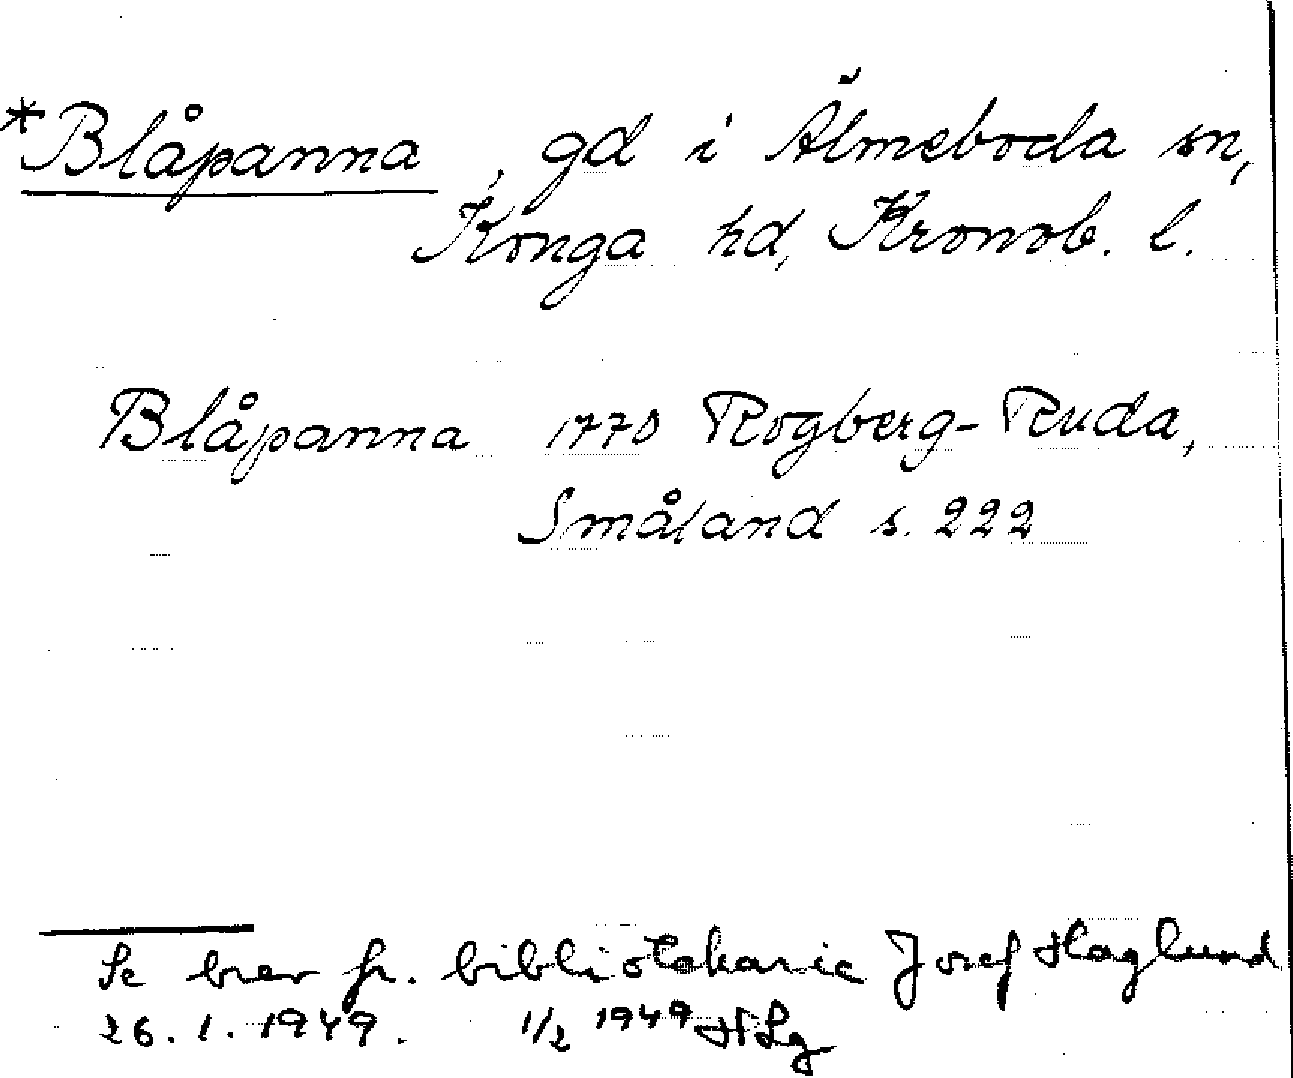 *Blåpanna, gd i Älmeboda sn,
Konga hd, Kronob. l.
Blåpanna 1770 Rogberg-Ruda,
Småland s. 222
Se brev fr. bibliotekarie Josef Haglund
26.1.1949. 1/2 1949 HLg